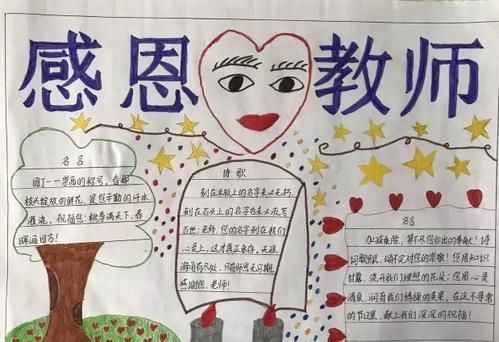 感恩教师
名言
园丁一崇高的称号。看那
枝头绽放的鲜花,是您辛勤的汗水
灌浇。祝福您:桃李满天下,春
晖遍四方!
诗歌
刻在木板上的名字未必不朽,
刻在石头上的名字也未必流芳
百世;老师,您的名字刻在我们
心灵上,这才真正永存。天涯
海角有尽处,只有师恩无穷期。
感谢您,老师!
名言
加减乘除,算不尽您作出的奉献!诗
词歌赋,颂不完对您的崇敬!您用知识
甘露,浇开我们理想的花朵;您用心灵
清泉,润育我们情操的美果。在这不寻常
的节日里,献上我们深深的祝福!